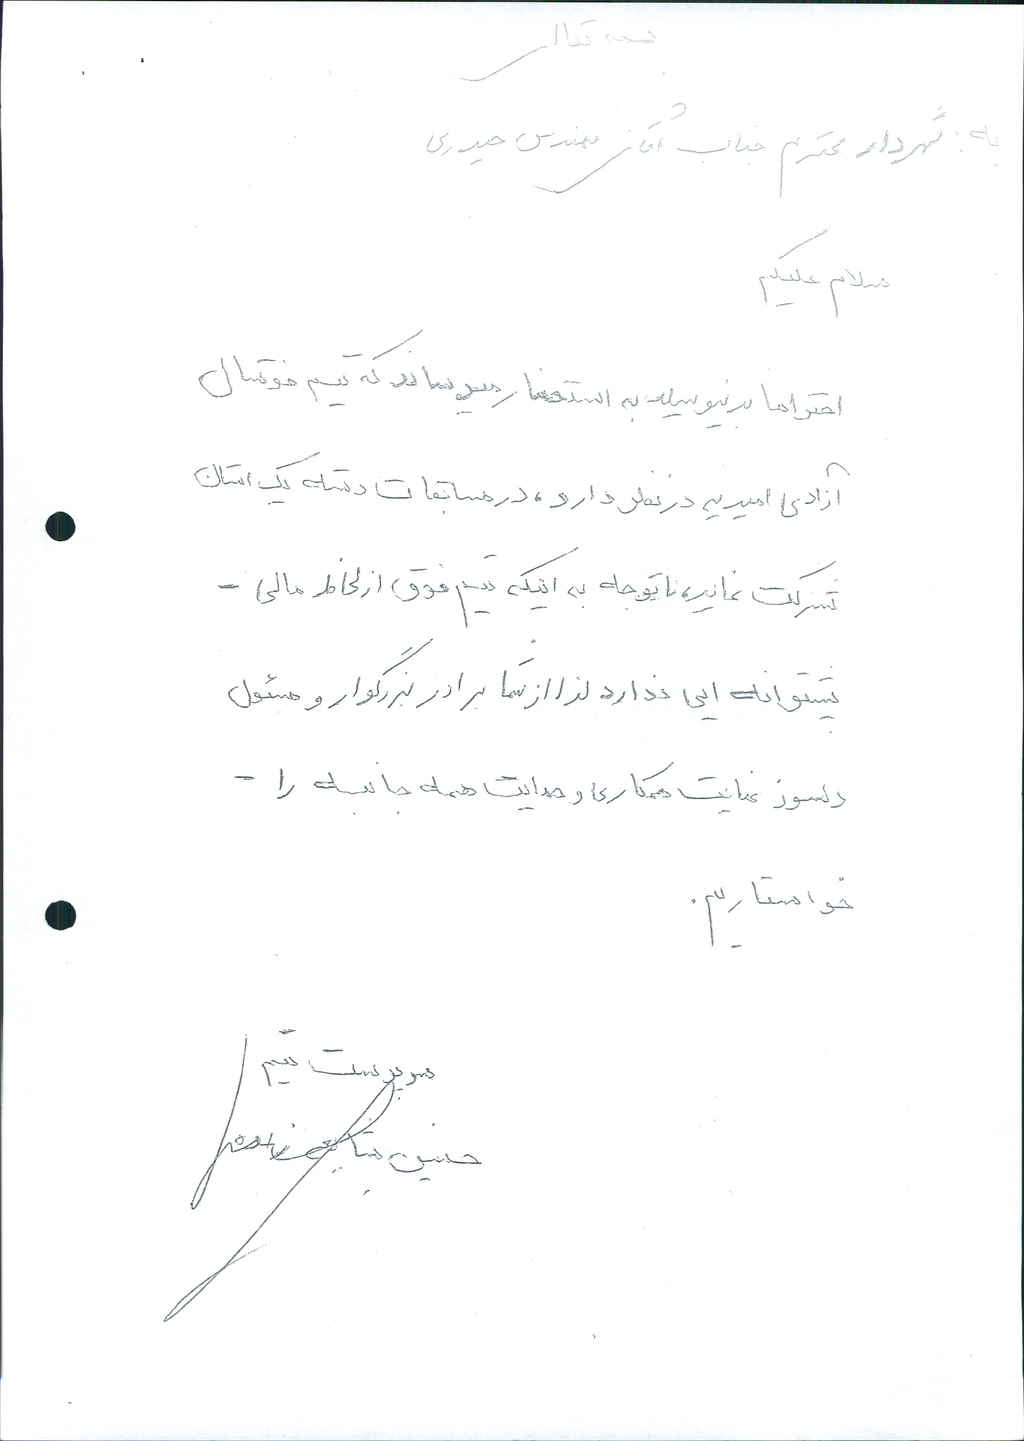 بسمه تعالی
به: شهردار محترم جناب آقای مهندس حیدری
سلام علیکم
احتراما بدنیوسیله به استحضار میرساند که تیم فوتسال
آزادی امیریه در نظر دارد، در مسابقات دسته یک استان
شرکت نماید، با توجه به اینکه تیم فوق از لحاظ مالی -
پشتوانه ایی ندارد لذا از شما برادر بزرگوار و مسئول
دلسوز نهایت همکاری و حمایت همه جانبه را -
خواستاریم.
سرپرست تیم
حسین